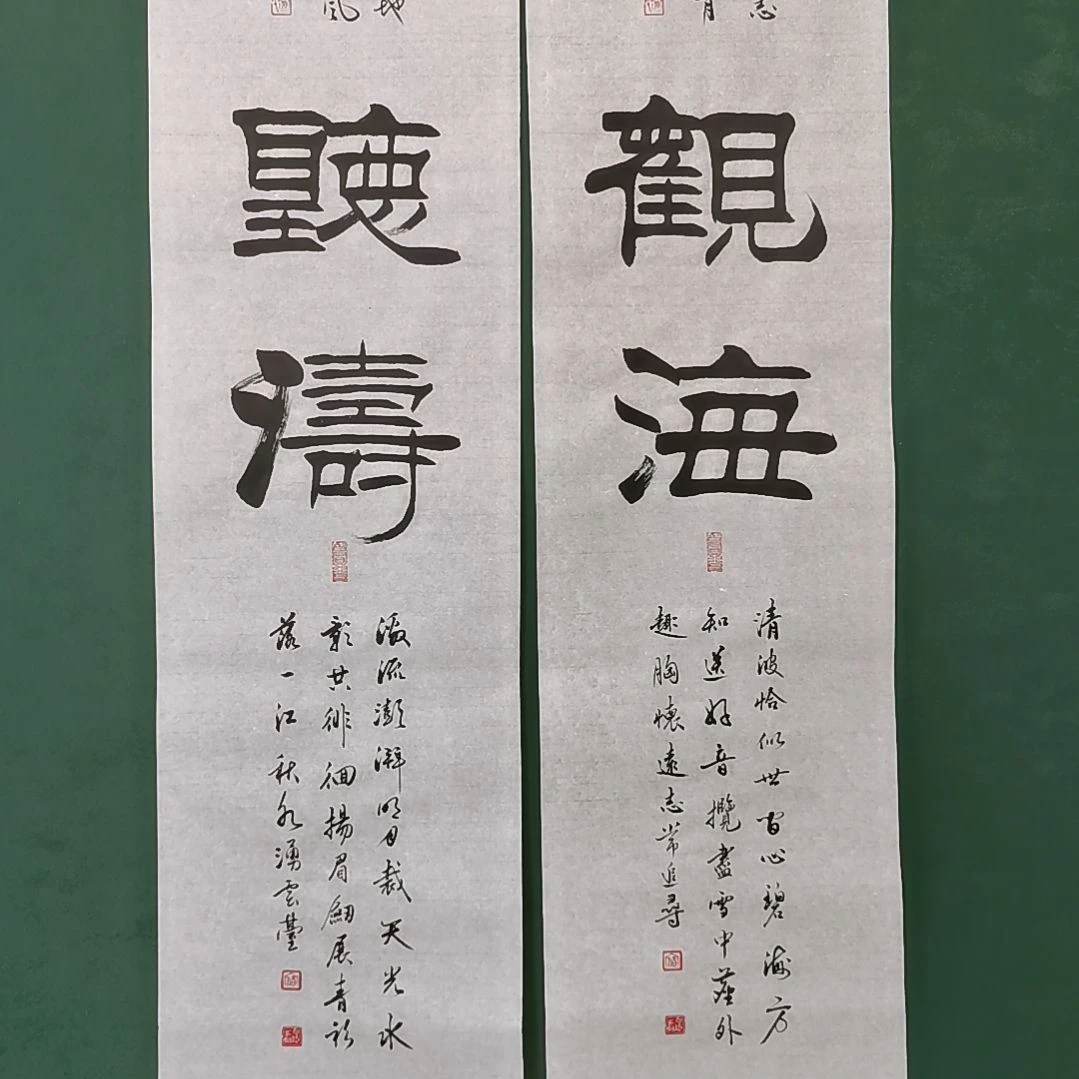 志
觀
海
清波恰似世間心碧海方
知送好音攬盡雪中塵外
趣胸懷遠志常追尋
風
聽
濤
激流澎湃明月裁天光水
影共徘徊揚眉劍展青衫
落一江秋水湧雲臺